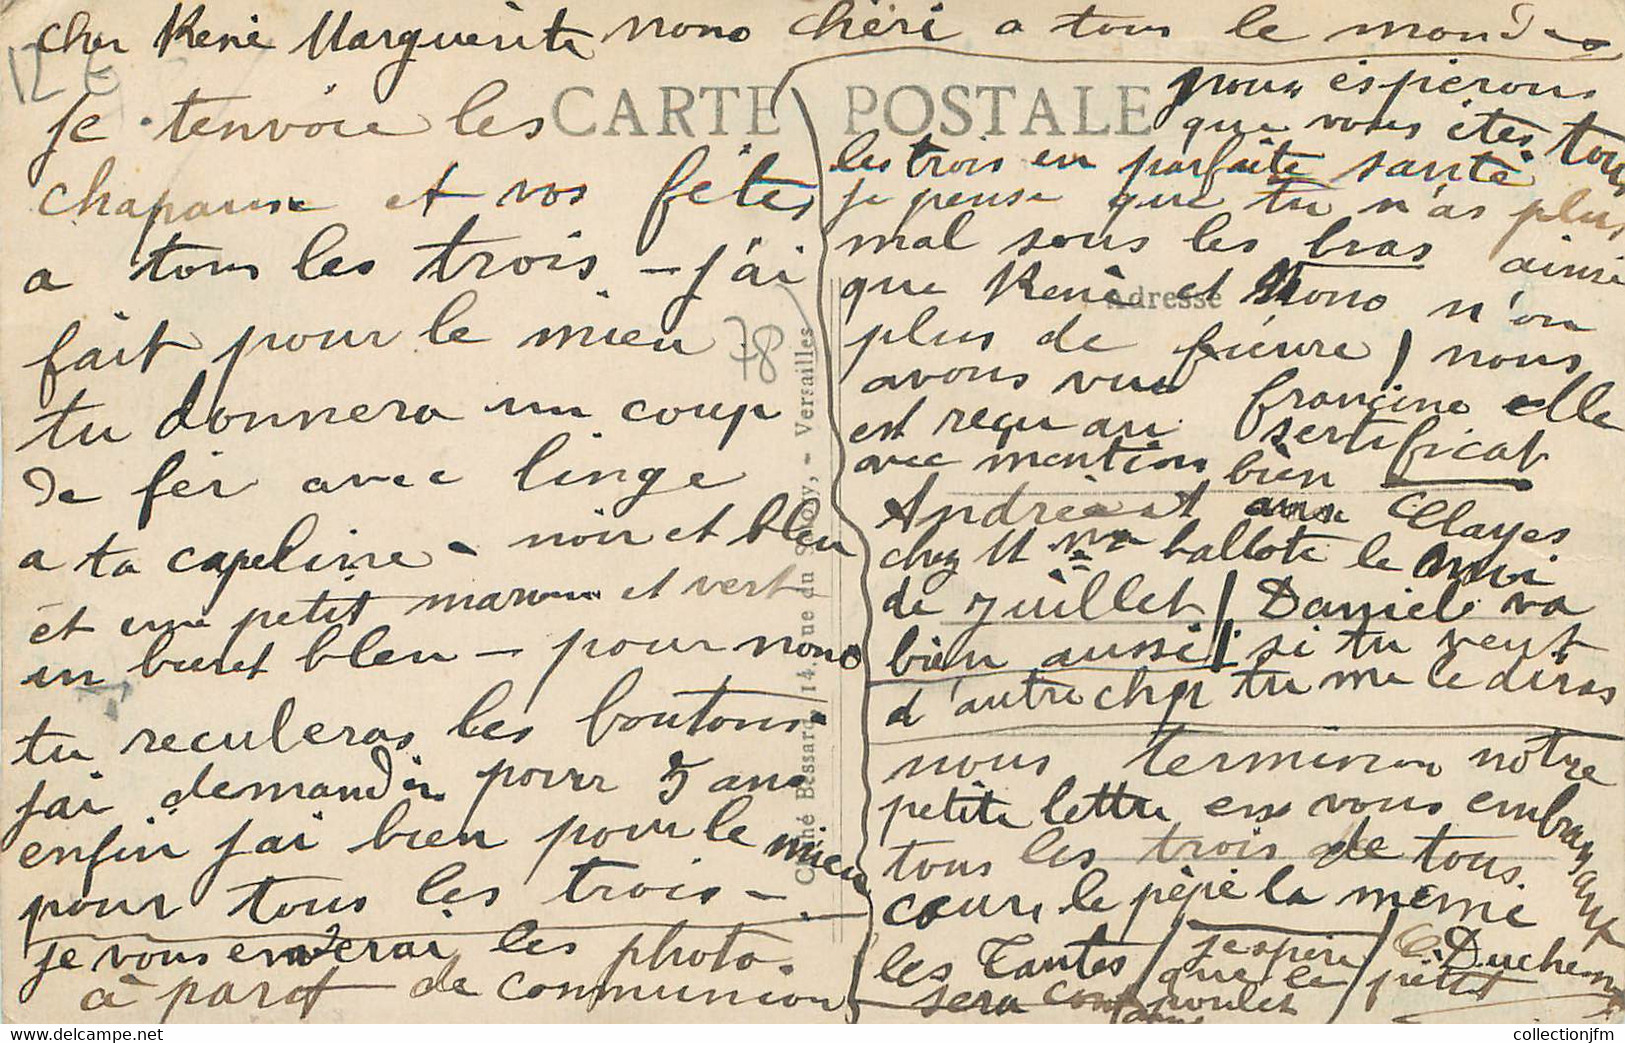 cher René Marguerite nono chéri a tous le monde
CARTE POSTALE
je tenvoie les
chapaux et vos fêtes
a tous les trois – j'ai
fait pour le mieu
tu donnera un coup
de fer avec linge
a ta capeline - noir et bleu
et un petit marron et vert
un beret bleu – pour nono
tu reculeras les boutons.
j'ai demander pour 5 ans
enfin j'ai bien pour le mieu
pour tous les trois –
je vous enverai les photo.
à part de communion
78
Cliché Bessard, 14, rue du , - Versailles
Adresse
nous éspérons
que vous êtes tous
les trois en parfaite santé
je pense que tu n'as plus
mal sous les bras ainsi
que René et Nono n'on
plus de fièvre / nous
avons vue francine elle
est reçu au sertificat
avec mention bien
André est aux Clayes
chez Mme ballote le moi
de juillet / Daniele va
bien aussi / si tu veut
d'autre cher tu me le diras
nous terminon nôtre
petite lettre en vous embrassant
tous les trois de tous
cœur, le pépé la mémé
les Tantes / j'espère / C. Duchemin
que le petit
poulet
sera content
collectionjfm